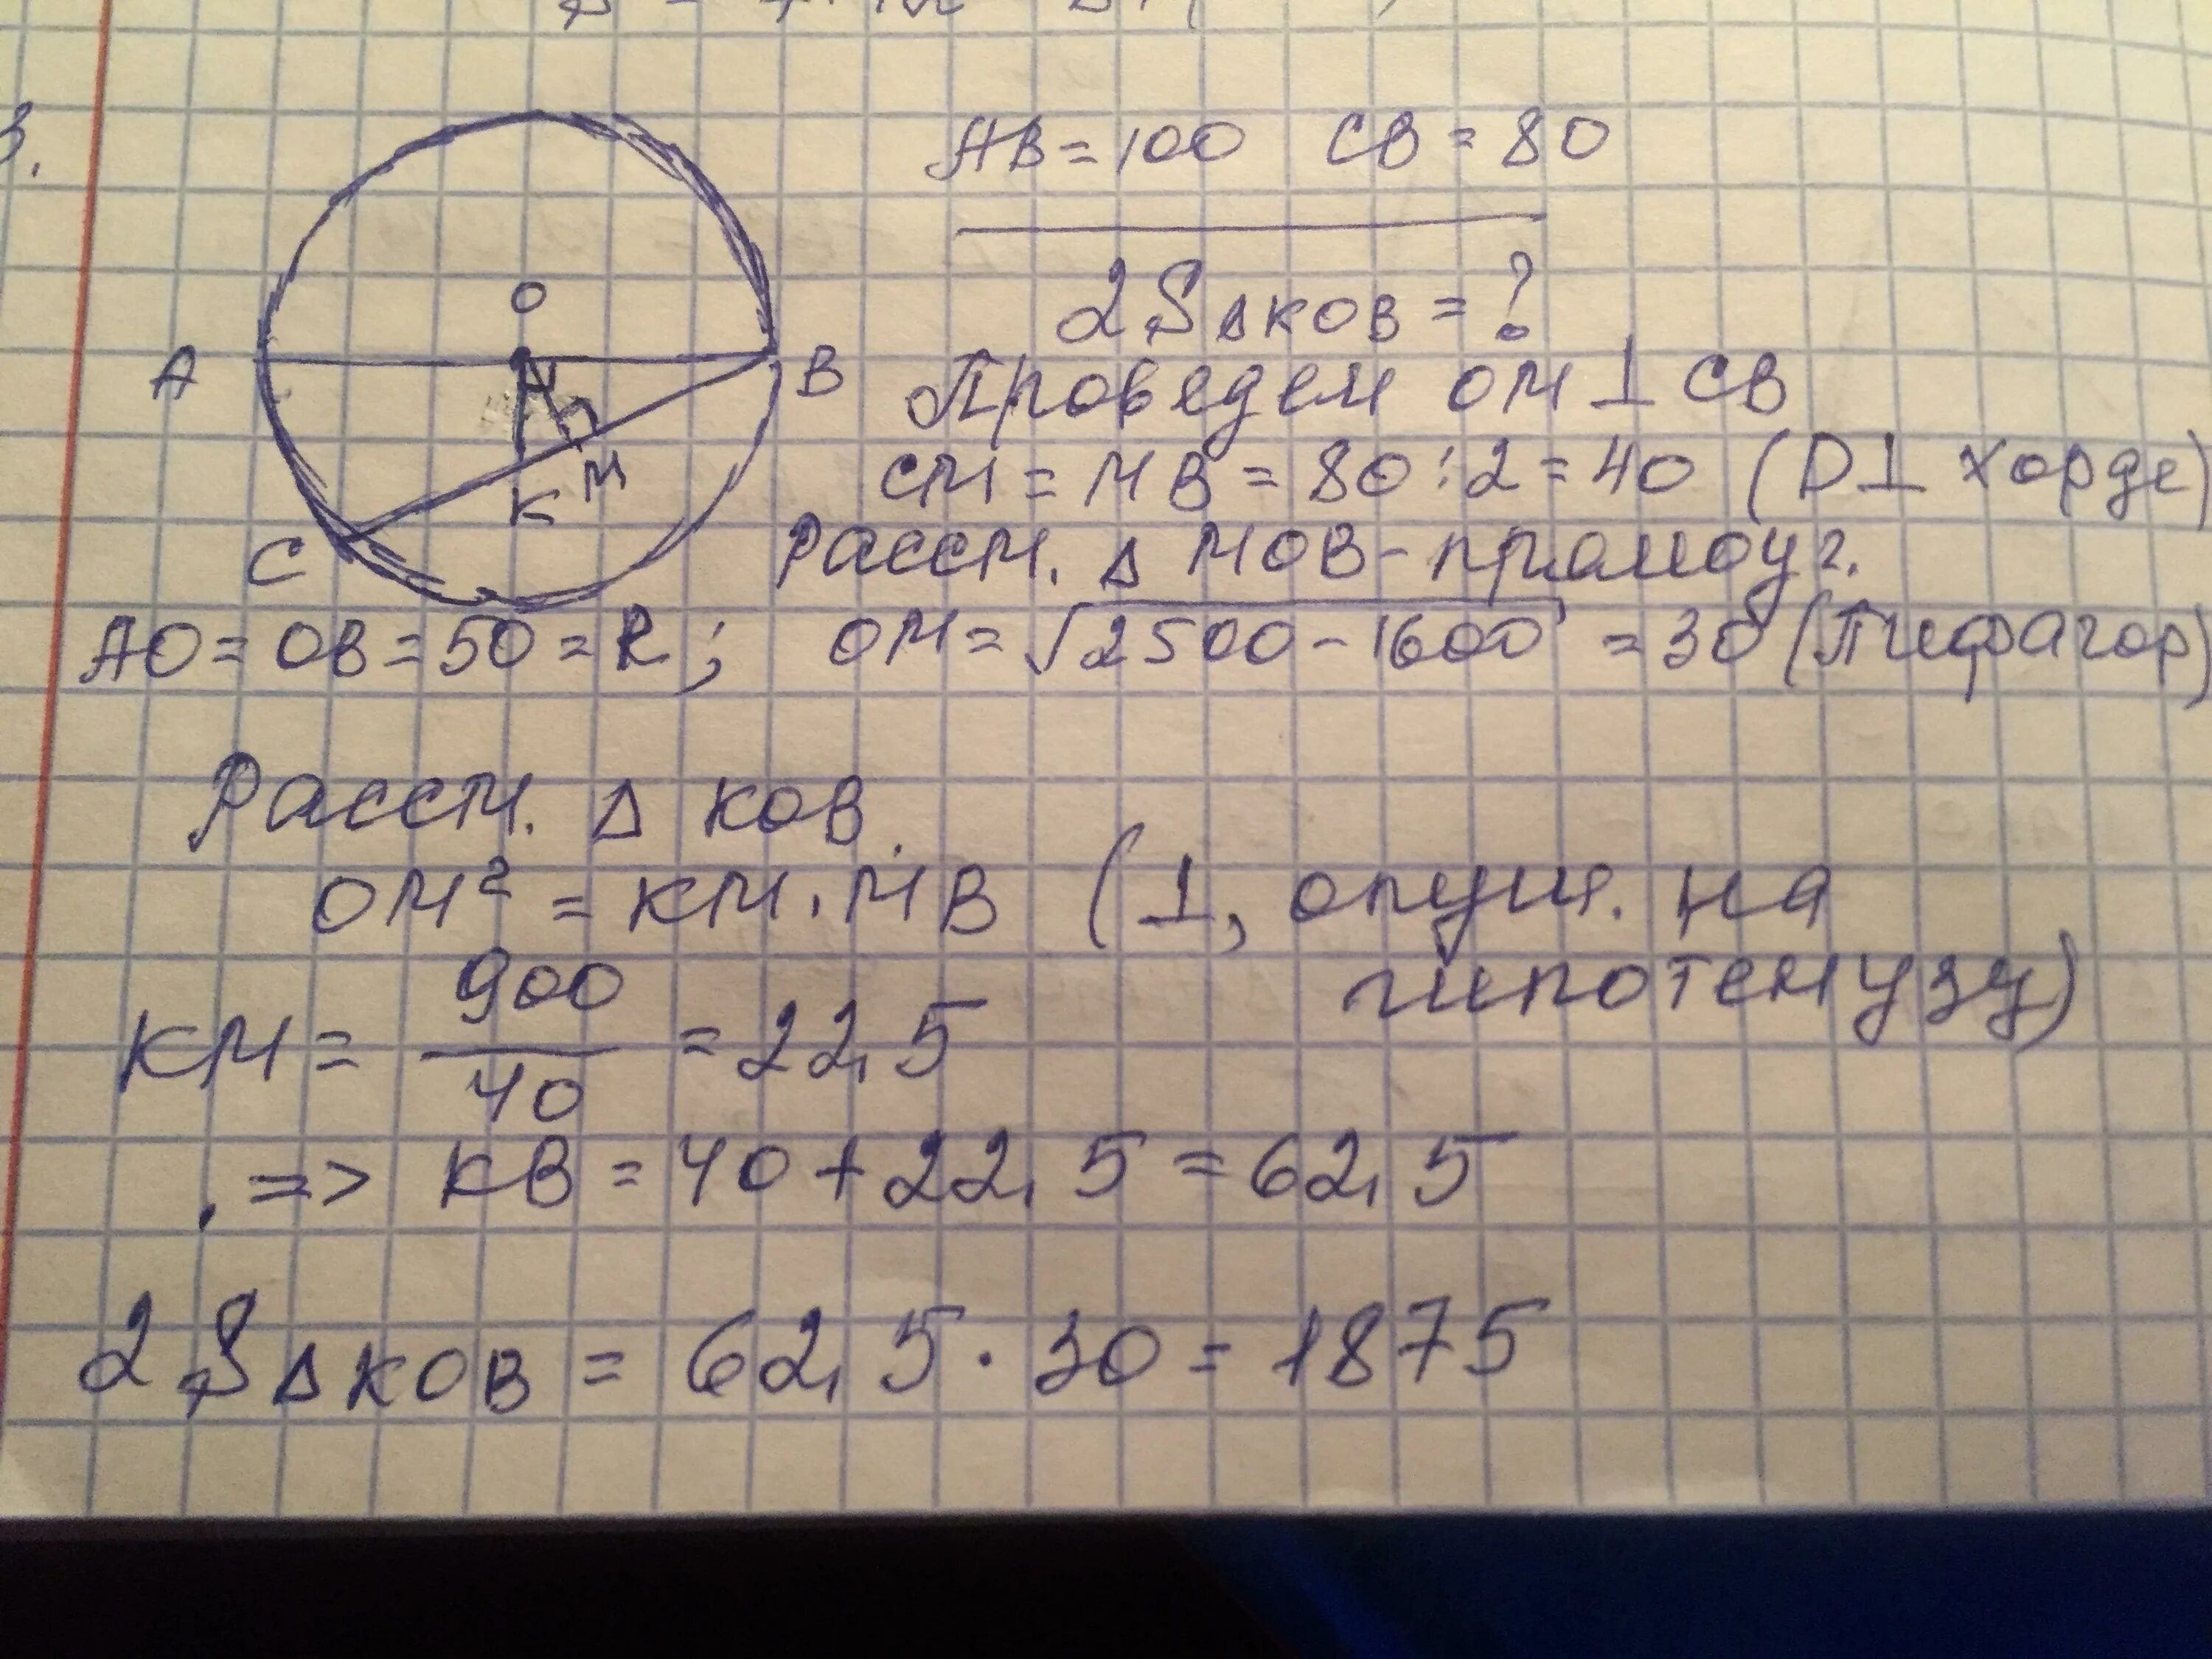 3.
AB = 100 CB = 80
2S Δ KOB = ?
O
A
B
K
M
C
Проведем OM ⊥ CB
CM = MB = 80 : 2 = 40 (D ⊥ хорде)
Рассм. Δ MOB - прямоуг.
AO = OB = 50 = R ; OM = √2500 - 1600 = 30 (Пифагор)
Рассм. Δ KOB.
OM² = KM · MB (⊥, опущ. на гипотенузу)
KM = 900/40 = 22,5
=> KB = 40 + 22,5 = 62,5
2S Δ KOB = 62,5 · 30 = 1875